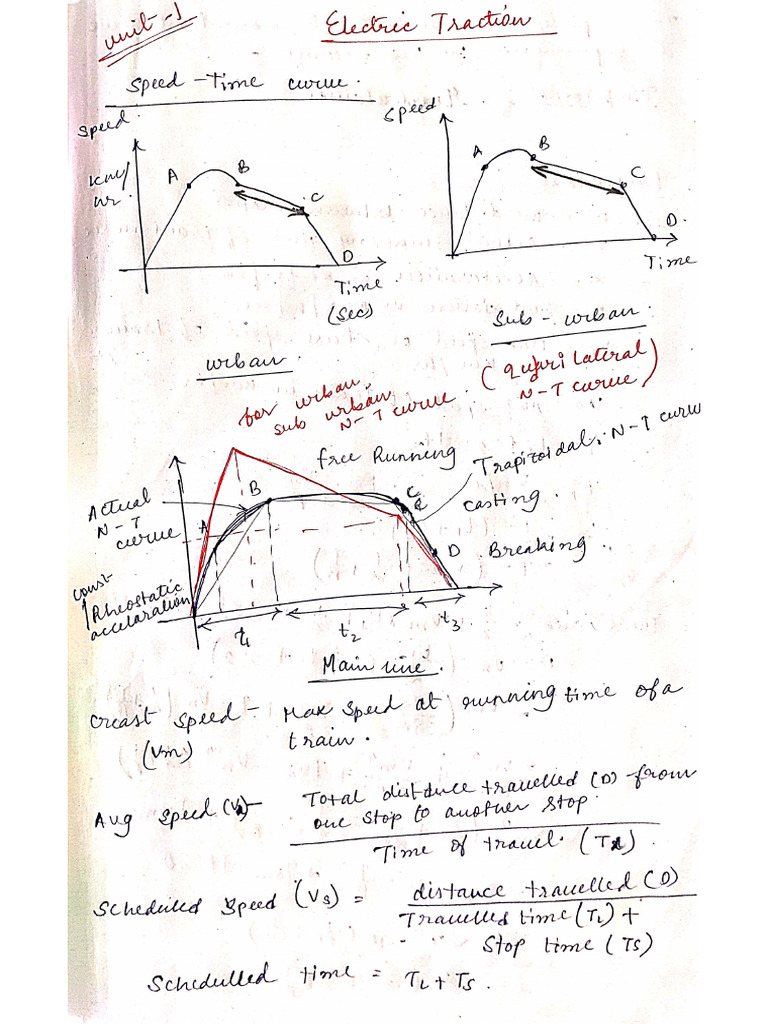 Unit-1
Electric Traction
Speed - Time curve.
Speed
Km/
Hr.
A
B
C
D
Time
(Sec)
urban
Speed
A
B
C
D.
Time
Sub - urban
(Quadrilateral
N-T curve)
for urban,
sub urban
N-T curve.
free Running
Trapizoidal N-T curve
Actual
N-T
curve
A
B
C
D
casting.
Breaking.
const
Rheostatic
accelaration
t1
t2
t3
Main line.
Creast Speed - Max Speed at running time of a
(Vm)
train.
Avg Speed - Total distance travelled (D) from
one stop to another stop.
Time of travel.
Schedulled Speed (Vs) = distance travelled (D)
Travelled time (TL) +
Stop time (Ts)
Schedulled time = TL + Ts.